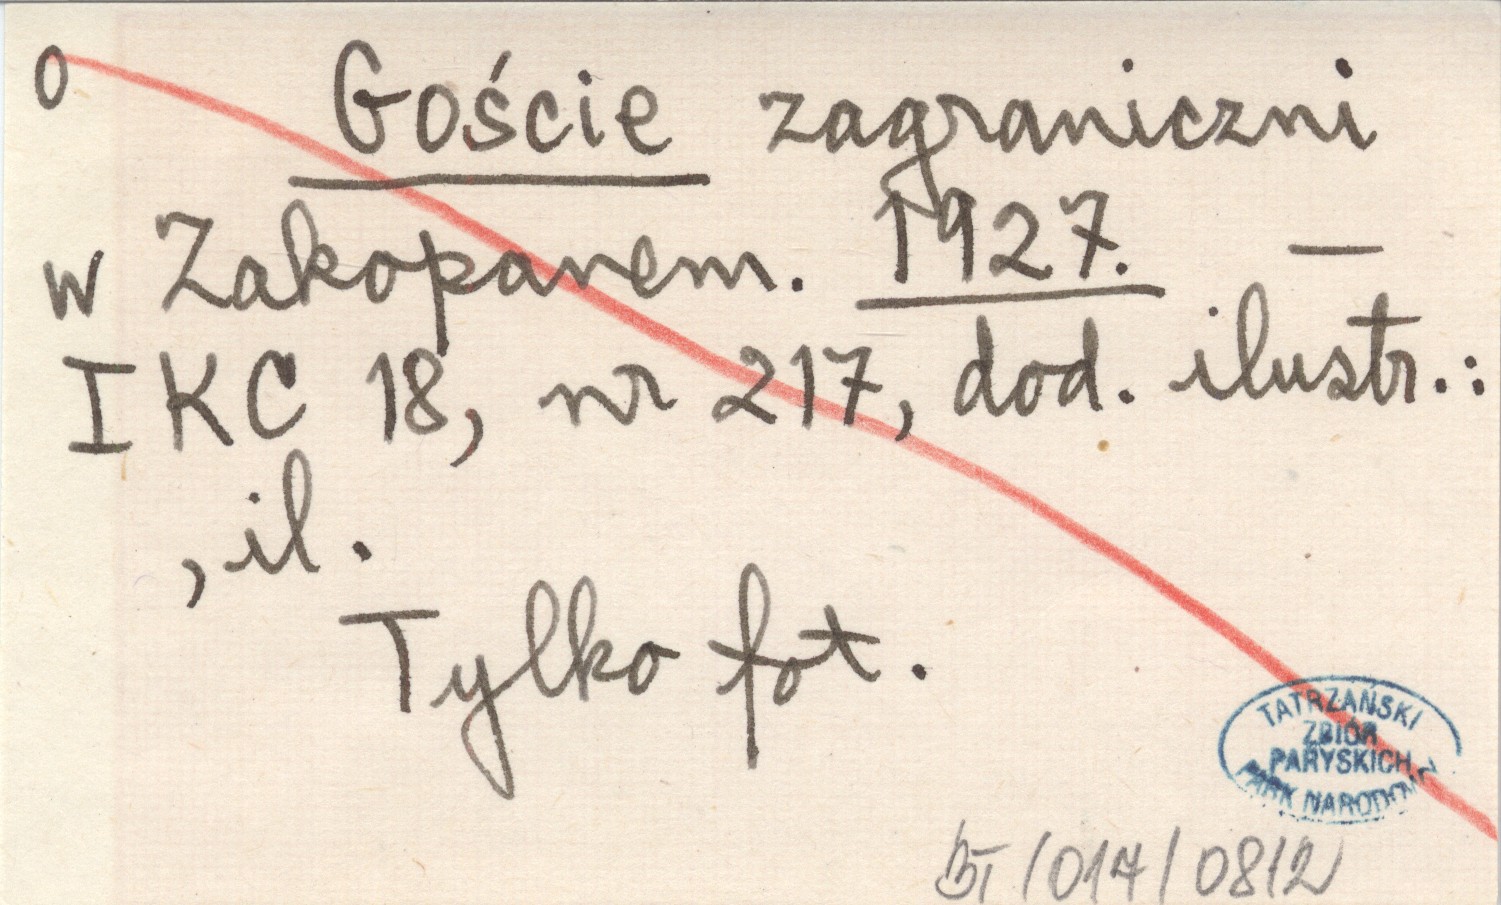 o Goście zagraniczni
w Zakopanem. 1927. —
IKC 18, nr 217, dod. ilustr.:
, il.
Tylko fot.
TATRZAŃSKI
ZBIÓR
PARYSKICH
PARK NARODOWY
BT/017/0812